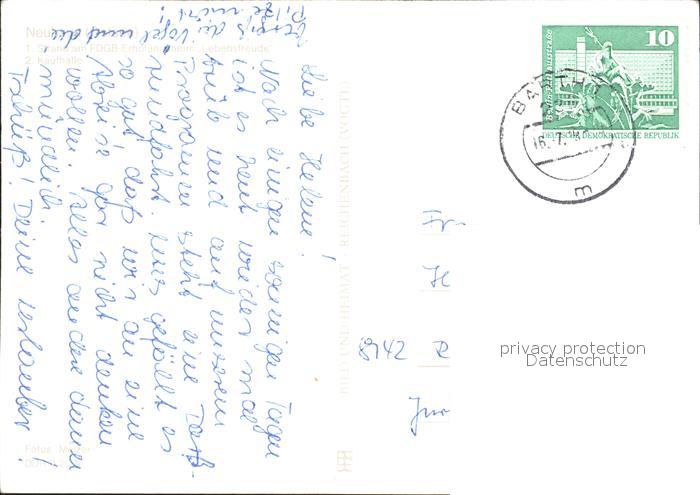 Neu
1. Strand am FDGB-Erholungsheim „Lebensfreude“
2. Kaufhalle
Liebe Helene!
Nach einigen sonnigen Tagen
ist es heut wieder mal
trüb und auf unserem
Programm steht eine
rundfahrt. Uns gefällt es
so gut, daß wir an eine
Abreise gar nicht denken
wollen. Alles andere dann
mündlich.
Tschüß! Deine Urlauber!
die Vögel und die
Pilze nicht!
Fotos:
BILD UND HEIMAT · REICHENBACH (VOGTL)
10
Berlin, Rathausstraße
DEUTSCHE DEMOKRATISCHE REPUBLIK
BARTH
16.-7.
m
Fr
H
8142 R
privacy protection
Datenschutz